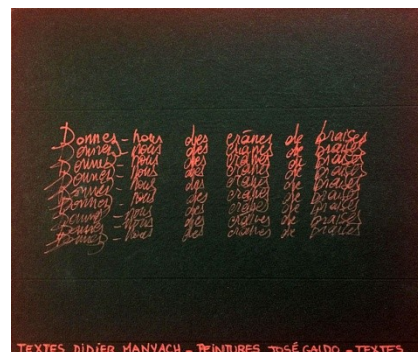 Donnes-nous des crânes de braises
Donnes-nous des crânes de braises
Donnes-nous des crânes de braises
Donnes-nous des crânes de braises
Donnes-nous des crânes de braises
Donnes-nous des crânes de braises
Donnes-nous des crânes de braises
Donnes-nous des crânes de braises
Donnes-nous des crânes de braises
TEXTES DIDIER MANYACH - PEINTURES JOSÉ GALDO - TEXTES